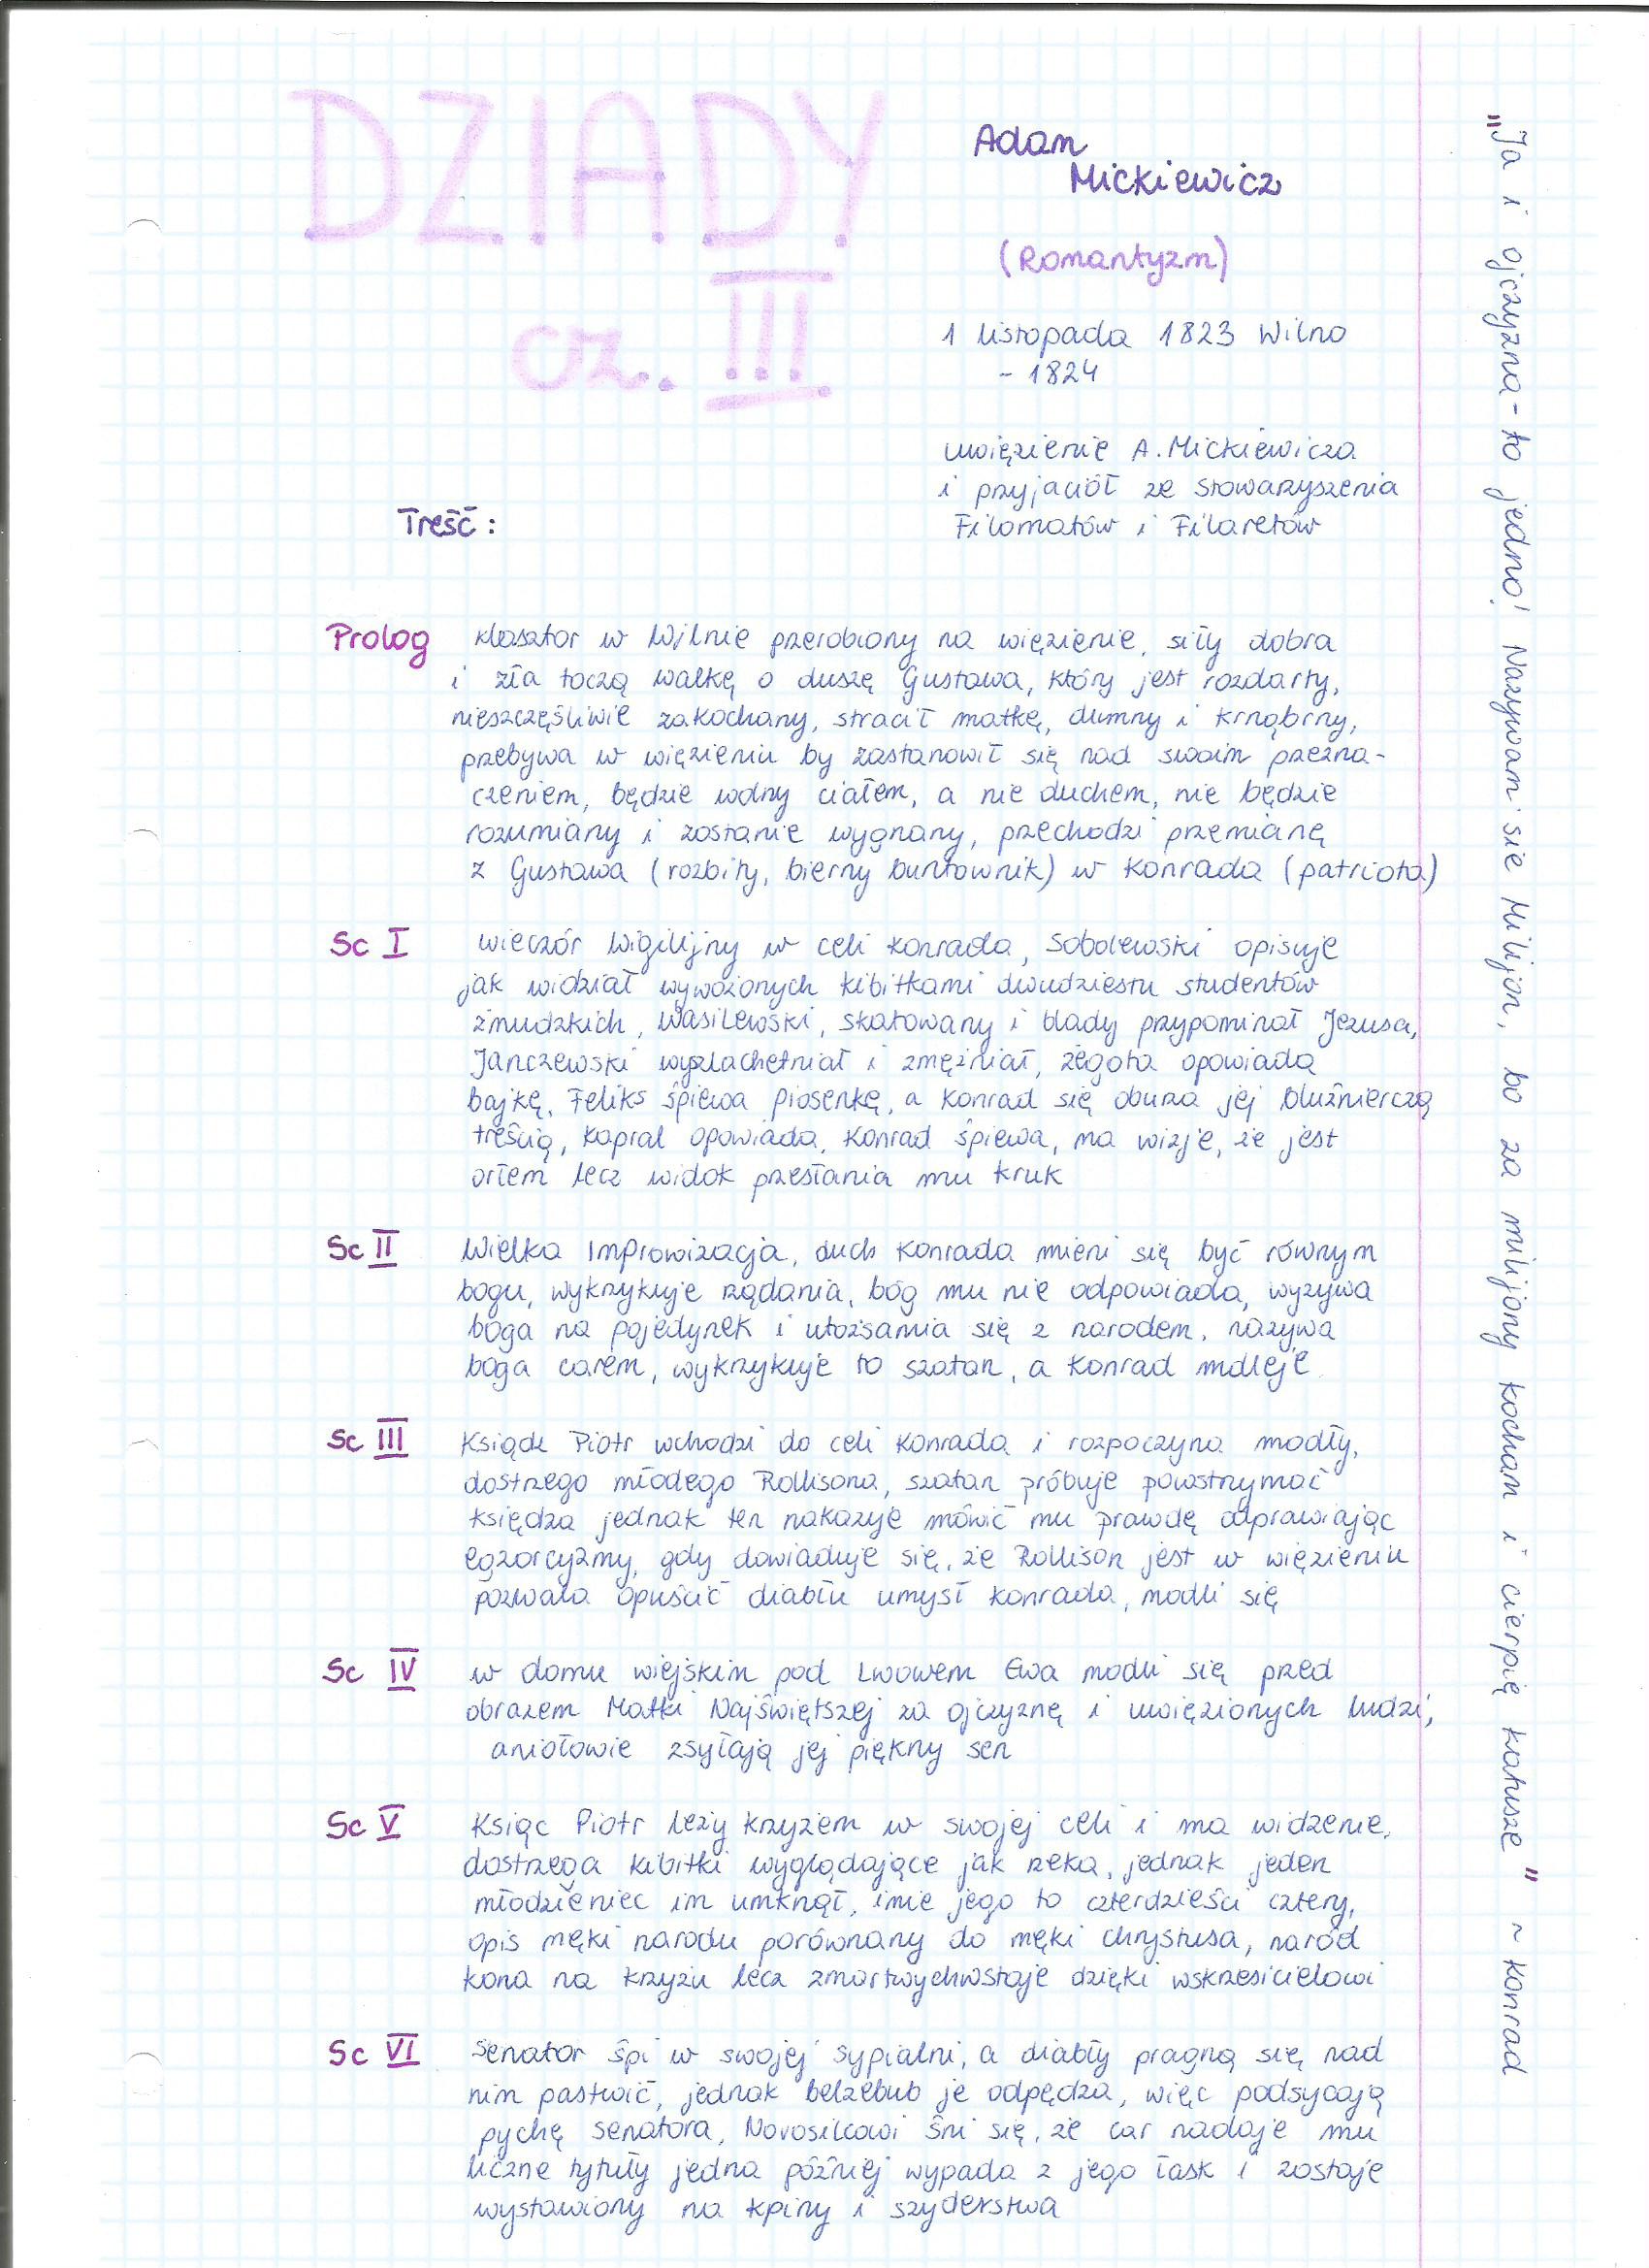 DZIADY
cz. III
Adam
Mickiewicz
(Romantyzm)
1 listopada 1823 Wilno
- 1824
uwięzienie A. Mickiewicza
i przyjaciół ze Stowarzyszenia
Filomatów i Filaretów
Treść:
Prolog klasztor w Wilnie przerobiony na więzienie, siły dobra
i zła toczą walkę o duszę Gustawa, który jest rozdarty,
nieszczęśliwie zakochany, stracił matkę, dumny i krnąbrny,
przebywa w więzieniu by zastanowił się nad swoim przezna-
czeniem, będzie wolny ciałem, a nie duchem, nie będzie
rozumiany i zostanie wygnany, przechodzi przemianę
z Gustawa (rozbity, bierny buntownik) w Konrada (patriota)
Sc I wieczór wigilijny w celi Konrada, Sobolewski opisuje
jak widział wywożonych kibitkami dwudziestu studentów
żmudzkich, Wasilewski, skatowany i blady przypominał Jezusa,
Janczewski wyszlachetniał i zmężniał, Żegota opowiada
bajkę, Feliks śpiewa piosenkę, a Konrad się oburza jej bluźnierczą
treścią, Kapral opowiada, Konrad śpiewa, ma wizje, że jest
orłem lecz widok przesłania mu kruk
Sc II Wielka Improwizacja, duch Konrada mieni się być równym
bogu, wykrzykuje żądania, bóg mu nie odpowiada, wyzywa
boga na pojedynek i utożsamia się z narodem, nazywa
boga carem, wykrzykuje to szatan, a Konrad mdleje
Sc III Ksiądz Piotr wchodzi do celi Konrada i rozpoczyna modły,
dostrzego młodego Rollisona, szatan próbuje powstrzymać
księdza jednak ten nakazyje mówić mu prawdę odprawiając
egzorcyzmy, gdy dowiaduje się, że Rollison jest w więzieniu
pozwala opuścić diabłu umysł Konrada, modli się
Sc IV w domu wiejskim pod Lwowem Ewa modli się przed
obrazem Matki Najświętszej za ojczyznę i uwięzionych ludzi,
aniołowie zsyłają jej piękny sen
Sc V Książ Piotr leży krzyżem w swojej celi i ma widzenie,
dostrzega kibitki wyglądające jak rzeka, jednak jeden
młodzieniec im umknął, imie jego to czterdzieści cztery,
opis męki narodu porównany do męki chrystusa, naród
kona na krzyżu lecz zmartwychwstaje dzięki wskrzesicielowi
Sc VI Senator śpi w swojej sypialni, a diabły pragną się nad
nim pastwić, jednak belzebub je odpędza, więc podsycają
pychę senatora, Novosilcowi śni się, że car nadaje mu
liczne tytuły jedna później wypada z jego łask i zostaje
wystawiony na kpiny i szyderstwa
"Ja i ojczyzna - to jedno! Nazywam się Milijon, bo za milijony kocham i cierpię katusze" ~ Konrad